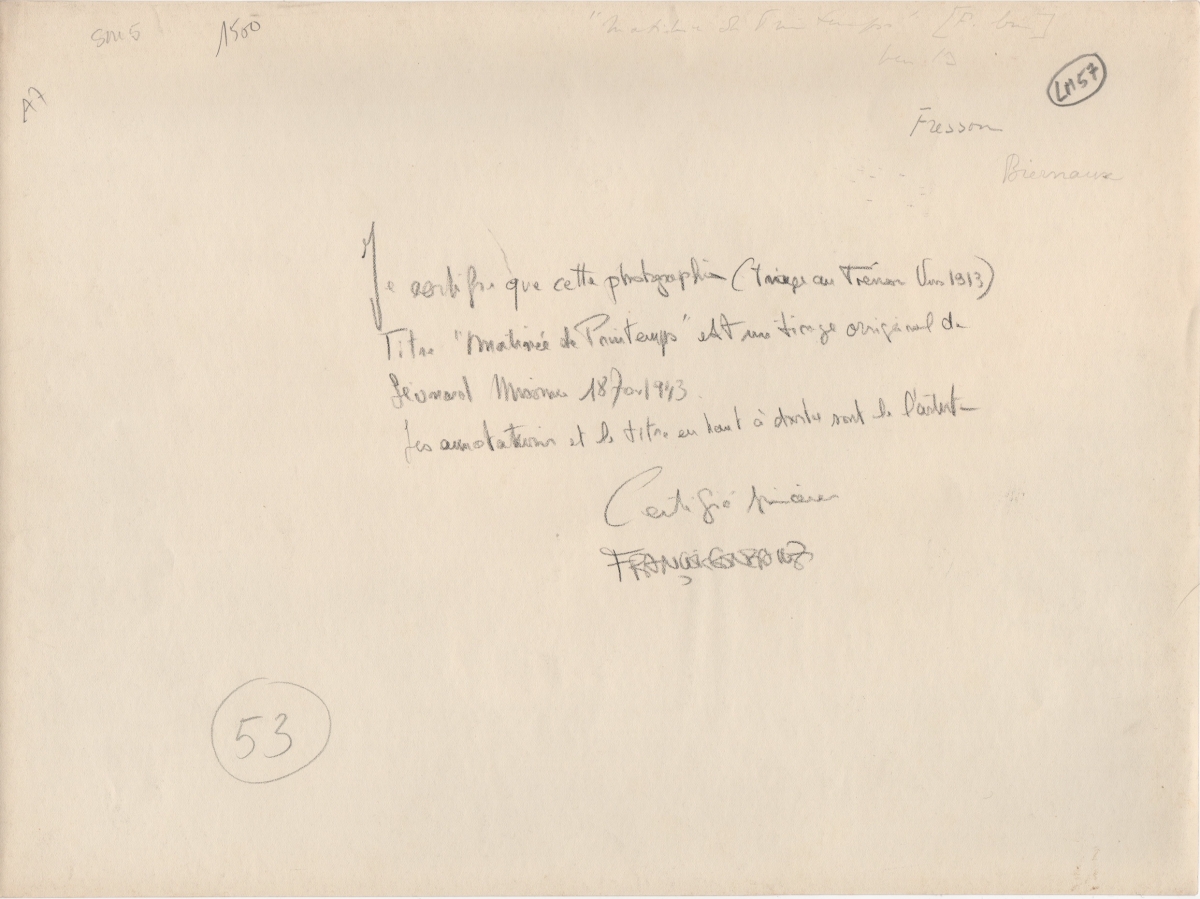 SM5
1500
"Matinée de Printemps"
LM57
A7
Fresson
Je certifie que cette photographie (Tirage au Fresson Vers 1913)
Titre "Matinée de Printemps" est un tirage original de
Léonard Misonne 1870-1943.
Les annotations et le titre en haut à droite sont de l'artiste
Certifié sincère
53